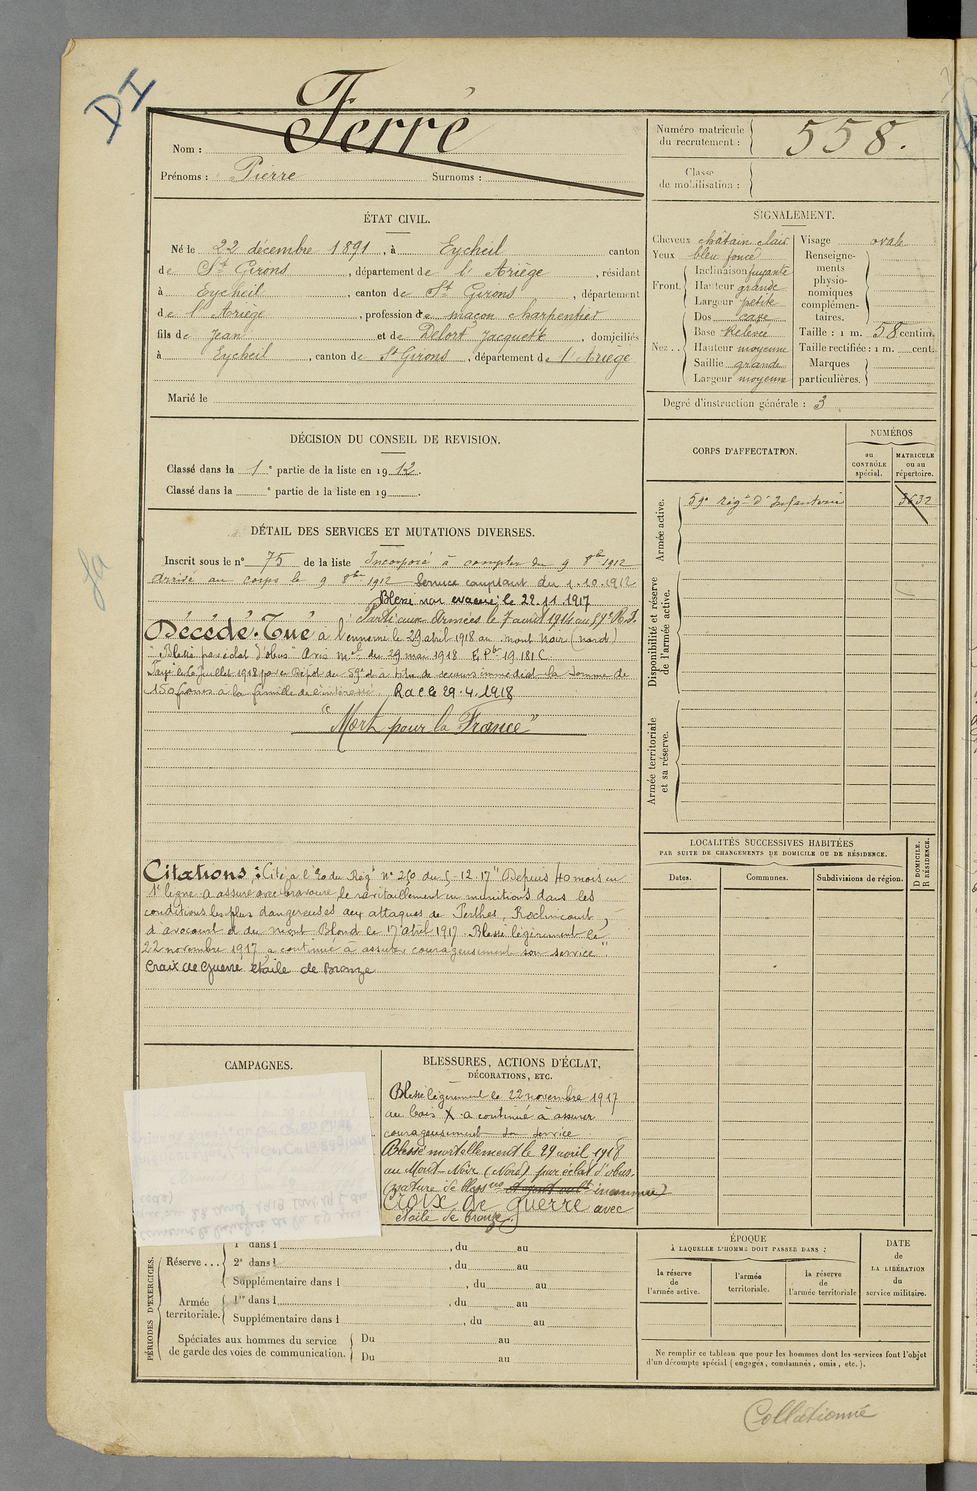 DI
Nom : Ferré
Prénoms : Pierre Surnoms :
Numéro matricule du recrutement : 558.
Classe de mobilisation :
ÉTAT CIVIL.
Né le 22 décembre 1891, à Eycheil canton
de St Girons, département de l'Ariège, résidant
à Eycheil, canton de St Girons, département
de l'Ariège, profession de maçon charpentier
fils de Jean et de Delort Jacquette, domiciliés
à Eycheil, canton de St Girons, département de l'Ariège
Marié le
SIGNALEMENT.
Cheveux châtain clair
Yeux bleu foncé
Front. Inclinaison fuyante
Hauteur grande
Largeur petite
Nez . . Dos cave
Base Relevée
Hauteur moyenne
Saillie grande
Largeur moyenne
Visage ovale
Renseignements physionomiques complémentaires.
Taille : 1 m. 58 centim.
Taille rectifiée : 1 m. cent.
Marques particulières.
Degré d'instruction générale : 3
DÉCISION DU CONSEIL DE REVISION.
Classé dans la 1e partie de la liste en 1912.
Classé dans la e partie de la liste en 19 .
CORPS D'AFFECTATION.
NUMÉROS
au CONTRÔLE spécial.
MATRICULE ou au répertoire.
Armée active.
59e Régt d'Infanterie 3632
Disponibilité et réserve de l'armée active.
Armée territoriale et sa réserve.
DÉTAIL DES SERVICES ET MUTATIONS DIVERSES.
Inscrit sous le n° 75 de la liste Incorporé à compter du 9 8bre 1912
Arrivé au corps le 9 8bre 1912 Service comptant du 1.10.1912
Blessé non evacué le 22.11.1917
Parti aux Armées le 7 août 1914 au 59e R.I.
Décédé. Tué à l'ennemi le 29 abril 1918 au mont Noir (nord)
"Blessé par éclat d'obus" Avis mel du 29 mai 1918
Payé le 6 Juillet 1918 par le Dépôt du 59e à titre de secours immédiat la somme de
150 francs à la famille de l'intéressé. R.d.C. le 29.4.1918
"Mort pour la France"
Citations : Cité à l'Ordre du Régt N° 260 du 5-12-17 "Depuis 40 mois en
1e ligne a assuré avec bravoure le ravitaillement en munitions dans les
conditions les plus dangereuses aux attaques de Perthes, Roclincourt,
d'avocourt et du mont Blond le 17 abril 1917. Blessé légèrement le
22 novembre 1917 a continué à assurer courageusement son service".
Croix de Guerre étoile de Bronze
LOCALITÉS SUCCESSIVES HABITÉES
PAR SUITE DE CHANGEMENTS DE DOMICILE OU DE RÉSIDENCE.
Dates. Communes. Subdivisions de région. D DOMICILE. R RÉSIDENCE.
CAMPAGNES.
BLESSURES, ACTIONS D'ÉCLAT,
DÉCORATIONS, ETC.
Blessé légèrement le 22 novembre 1917
au bois X a continué à assurer
courageusement son service
Blessé mortellement le 29 avril 1918
au Mont-Noir (Nord) par éclat d'obus.
(nature de bless inconnue)
Croix de guerre avec
étoile de bronze.
PÉRIODES D'EXERCICES.
Réserve . . .
1e dans l , du au
2e dans l , du au
Supplémentaire dans l , du au
Armée territoriale.
1re dans l , du au
Supplémentaire dans l , du au
Spéciales aux hommes du service de garde des voies de communication.
Du au
Du au
ÉPOQUE
À LAQUELLE L'HOMME DOIT PASSER DANS :
la réserve de l'armée active.
l'armée territoriale.
la réserve de l'armée territoriale
DATE de LA LIBÉRATION du service militaire.
Ne remplir ce tableau que pour les hommes dont les services font l'objet
d'un décompte spécial (engagés, condamnés, omis, etc.).
Collationné